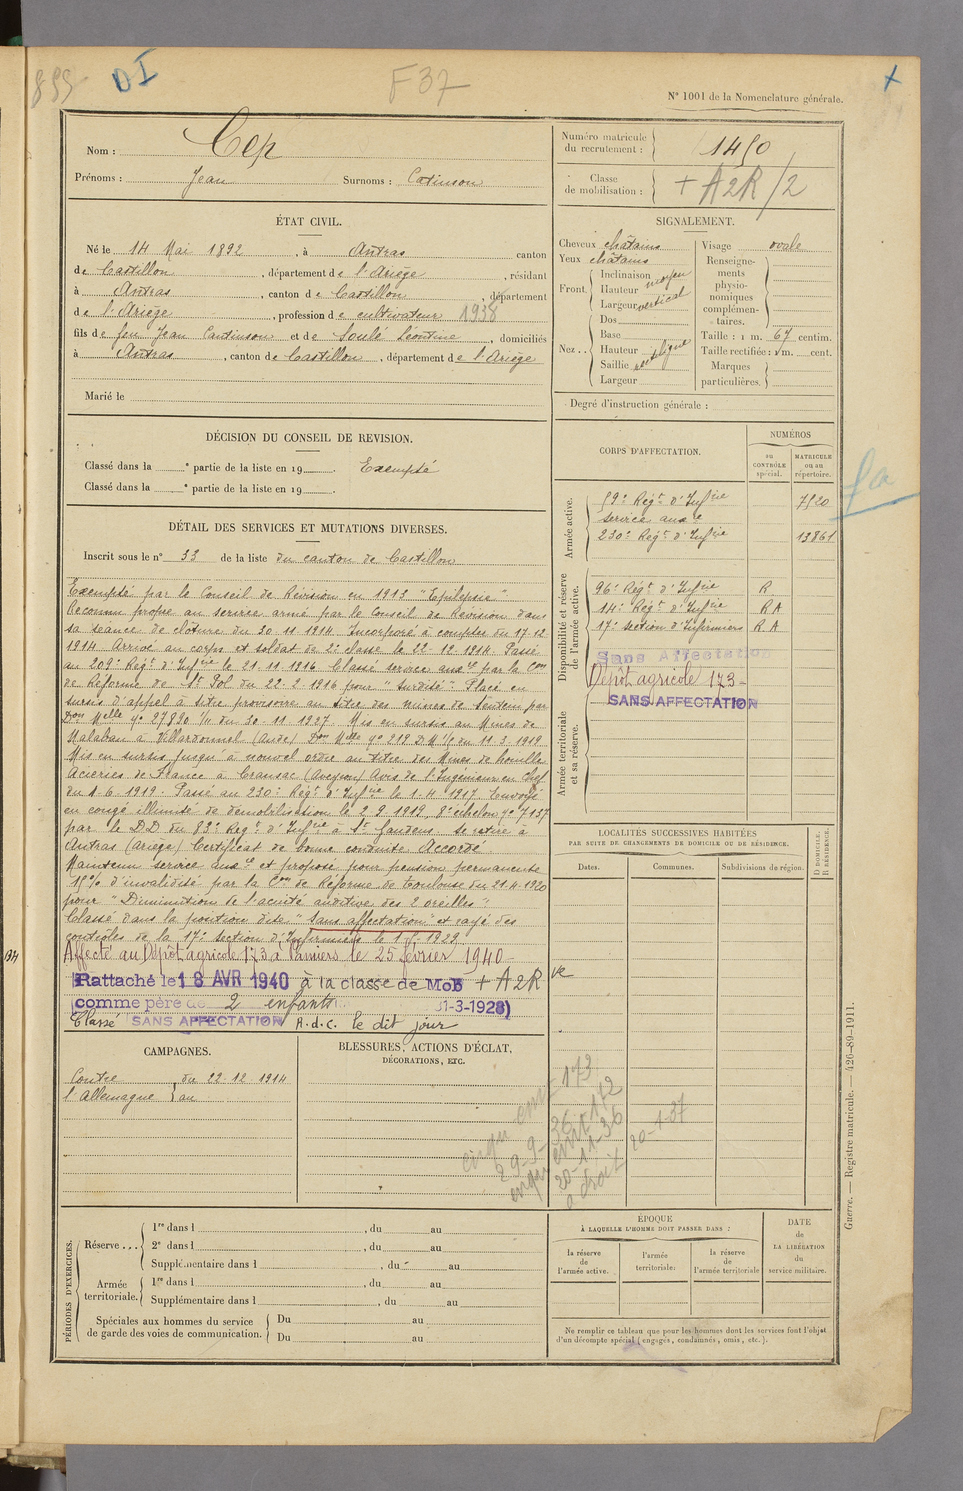 899
DI
F 37
+
N° 1001 de la Nomenclature générale.
Nom : Cep
Prénoms : Jean Surnoms : Cotinson
ÉTAT CIVIL.
Né le 14 Mai 1892, à Antras canton
de Castillon, département de l'Ariège, résidant
à Antras, canton de Castillon, département
de l'Ariège, profession de cultivateur 1938
fils de feu Jean Cantinson et de Soulé Léontine, domiciliés
à Antras, canton de Castillon, département de l'Ariège
Marié le
DÉCISION DU CONSEIL DE REVISION.
Classé dans la e partie de la liste en 19 . Exempté
Classé dans la e partie de la liste en 19 .
DÉTAIL DES SERVICES ET MUTATIONS DIVERSES.
Inscrit sous le n° 33 de la liste du canton de Castillon
Exempté par le Conseil de Révision en 1913 "Epilepsie"
Reconnu propre au service armé par le Conseil de Révision dans
sa séance de clôture du 30 11 1914. Incorporé à compter du 17-12
1914. Arrivé au corps et soldat de 2e classe le 22-12-1914. Passé
au 209e Régt d'Infrie le 21-11-1916. Classé service auxre par la Con
de Réforme de St Pol du 22-2-1916 pour "Surdité". Placé en
sursis d'appel à titre provisoire au titre des mines de Sentein par
Don Melle n° 27820 1/11 du 30-11-1927. Mis en sursis au Mines de
Malabau à Villardonnel (Aude) Don Melle n° 219 D M 1/2 du 11-3-1919
Mis en sursis jusqu'à nouvel ordre au titre des Mines de houille
Aciéries de France à Cransac (Aveyron) Avis de l'Ingénieur en Chef
du 1-6-1919. Passé au 230e Régt d'Infrie le 1-4-1917. Envoyé
en congé illimité de démobilisation le 2-9-1919, 8e échelon n° 7137
par le D.D du 83e Régt d'Infrie à St Gaudens se retire à
Antras (Ariège) Certificat de bonne conduite Accordé.
Maintenu service auxre et proposé pour pension permanente
15% d'invalidité par la Con de Réforme de Toulouse du 21-4-1920
pour "Diminution de l'acuité auditive des 2 oreilles"
Classé dans la position dite "Sans affectation" et rayé des
contrôles de la 17e section d'Infirmiers le 1-5-1929
Affecté au Dépôt agricole 173 à Pamiers le 25 février 1940-
Rattaché le 18 AVR 1940 à la classe de Mob + A2R
(comme père de 2 enfants 31-3-1928)
Classé SANS AFFECTATION A.d.c. le dit jour
CAMPAGNES.
Contre
l'Allemagne } du 22-12-1914
au
BLESSURES, ACTIONS D'ÉCLAT,
DÉCORATIONS, ETC.
173
29-9-36
172
20-11-36
a droit 20-1-37
PÉRIODES D'EXERCICES.
Réserve ... { 1re dans l , du au
2e dans l , du au
Supplémentaire dans l , du au
Armée territoriale. { 1re dans l , du au
Supplémentaire dans l , du au
Spéciales aux hommes du service
de garde des voies de communication. { Du au
Du au
Numéro matricule
du recrutement : } 1450
Classe
de mobilisation : } + A2R/2
SIGNALEMENT.
Cheveux châtains
Yeux châtains
Front. { Inclinaison moyen
Hauteur
Largeur vertical
Nez .. { Dos
Base
Hauteur
Saillie rectiligne
Largeur
Visage ovale
Renseigne-
ments
physio-
nomiques
complémen-
taires.
Taille : 1 m. 67 centim.
Taille rectifiée : 1 m. cent.
Marques
particulières. }
Degré d'instruction générale :
CORPS D'AFFECTATION.
NUMÉROS
au
CONTRÔLE
spécial.
MATRICULE
ou au
répertoire.
Armée active.
59e Régt d'Infrie 7520
service auxre
230e Régt d'Infrie 13861
fa
Disponibilité et réserve
de l'armée active.
96e Régt d'Infrie R
14e Régt d'Infrie R A
17e section d'Infirmiers R. A
Sans Affectation
Dépôt agricole 173-
SANS AFFECTATION
Armée territoriale
et sa réserve.
LOCALITÉS SUCCESSIVES HABITÉES
PAR SUITE DE CHANGEMENTS DE DOMICILE OU DE RÉSIDENCE.
Dates.
Communes.
Subdivisions de région.
D. DOMICILE.
R. RÉSIDENCE.
ÉPOQUE
À LAQUELLE L'HOMME DOIT PASSER DANS :
la réserve
de
l'armée active.
l'armée
territoriale.
la réserve
de
l'armée territoriale
DATE
de
LA LIBÉRATION
du
service militaire.
Ne remplir ce tableau que pour les hommes dont les services font l'objet
d'un décompte spécial (engagés, condamnés, omis, etc.).
Guerre. — Registre matricule. — 426-89-1911.